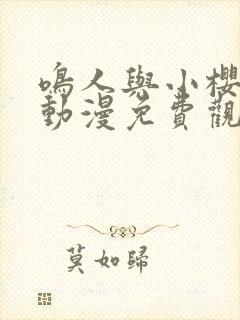 鳴人與小櫻
動漫免費觀
莫如歸